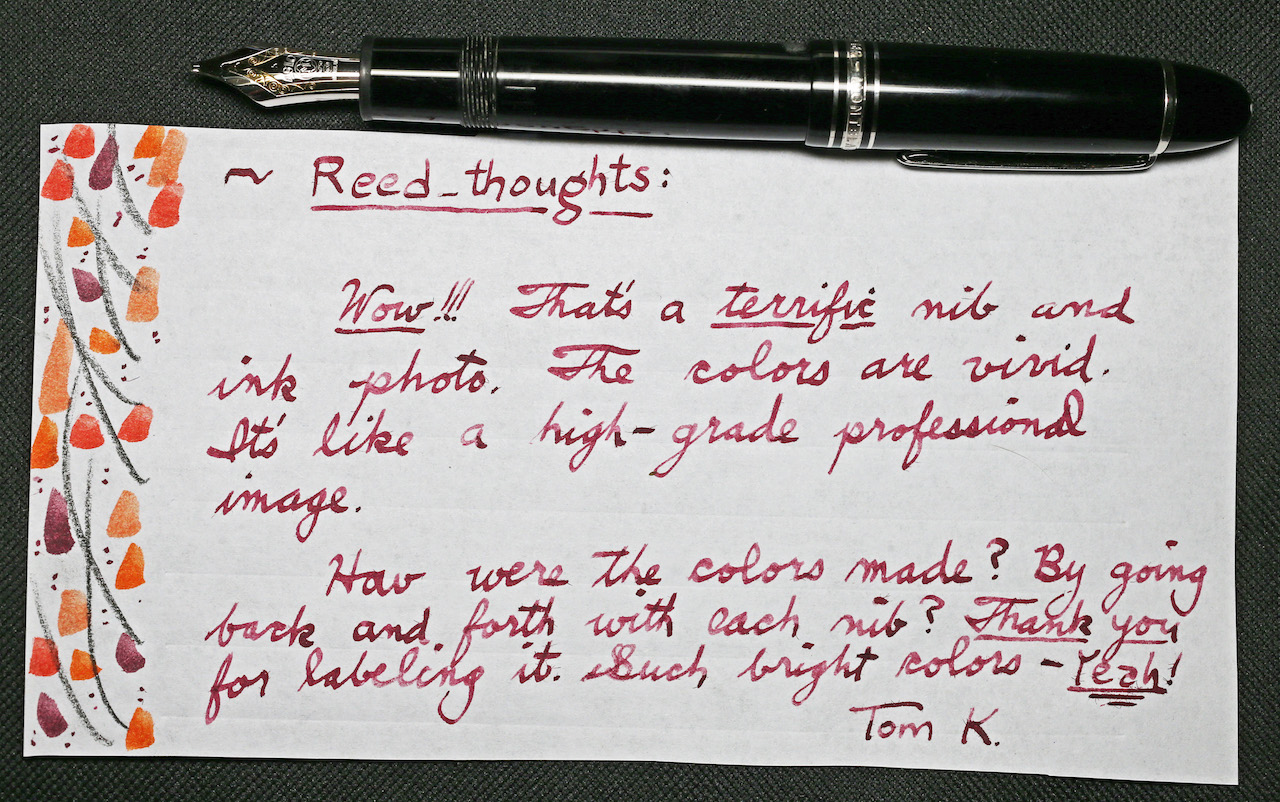 ~ Reed_thoughts:
Wow!!! That's a terrific nib and
ink photo. The colors are vivid.
It's like a high-grade professional
image.
How were the colors made? By going
back and forth with each nib? Thank you
for labeling it. Such bright colors - Yeah!
Tom K.